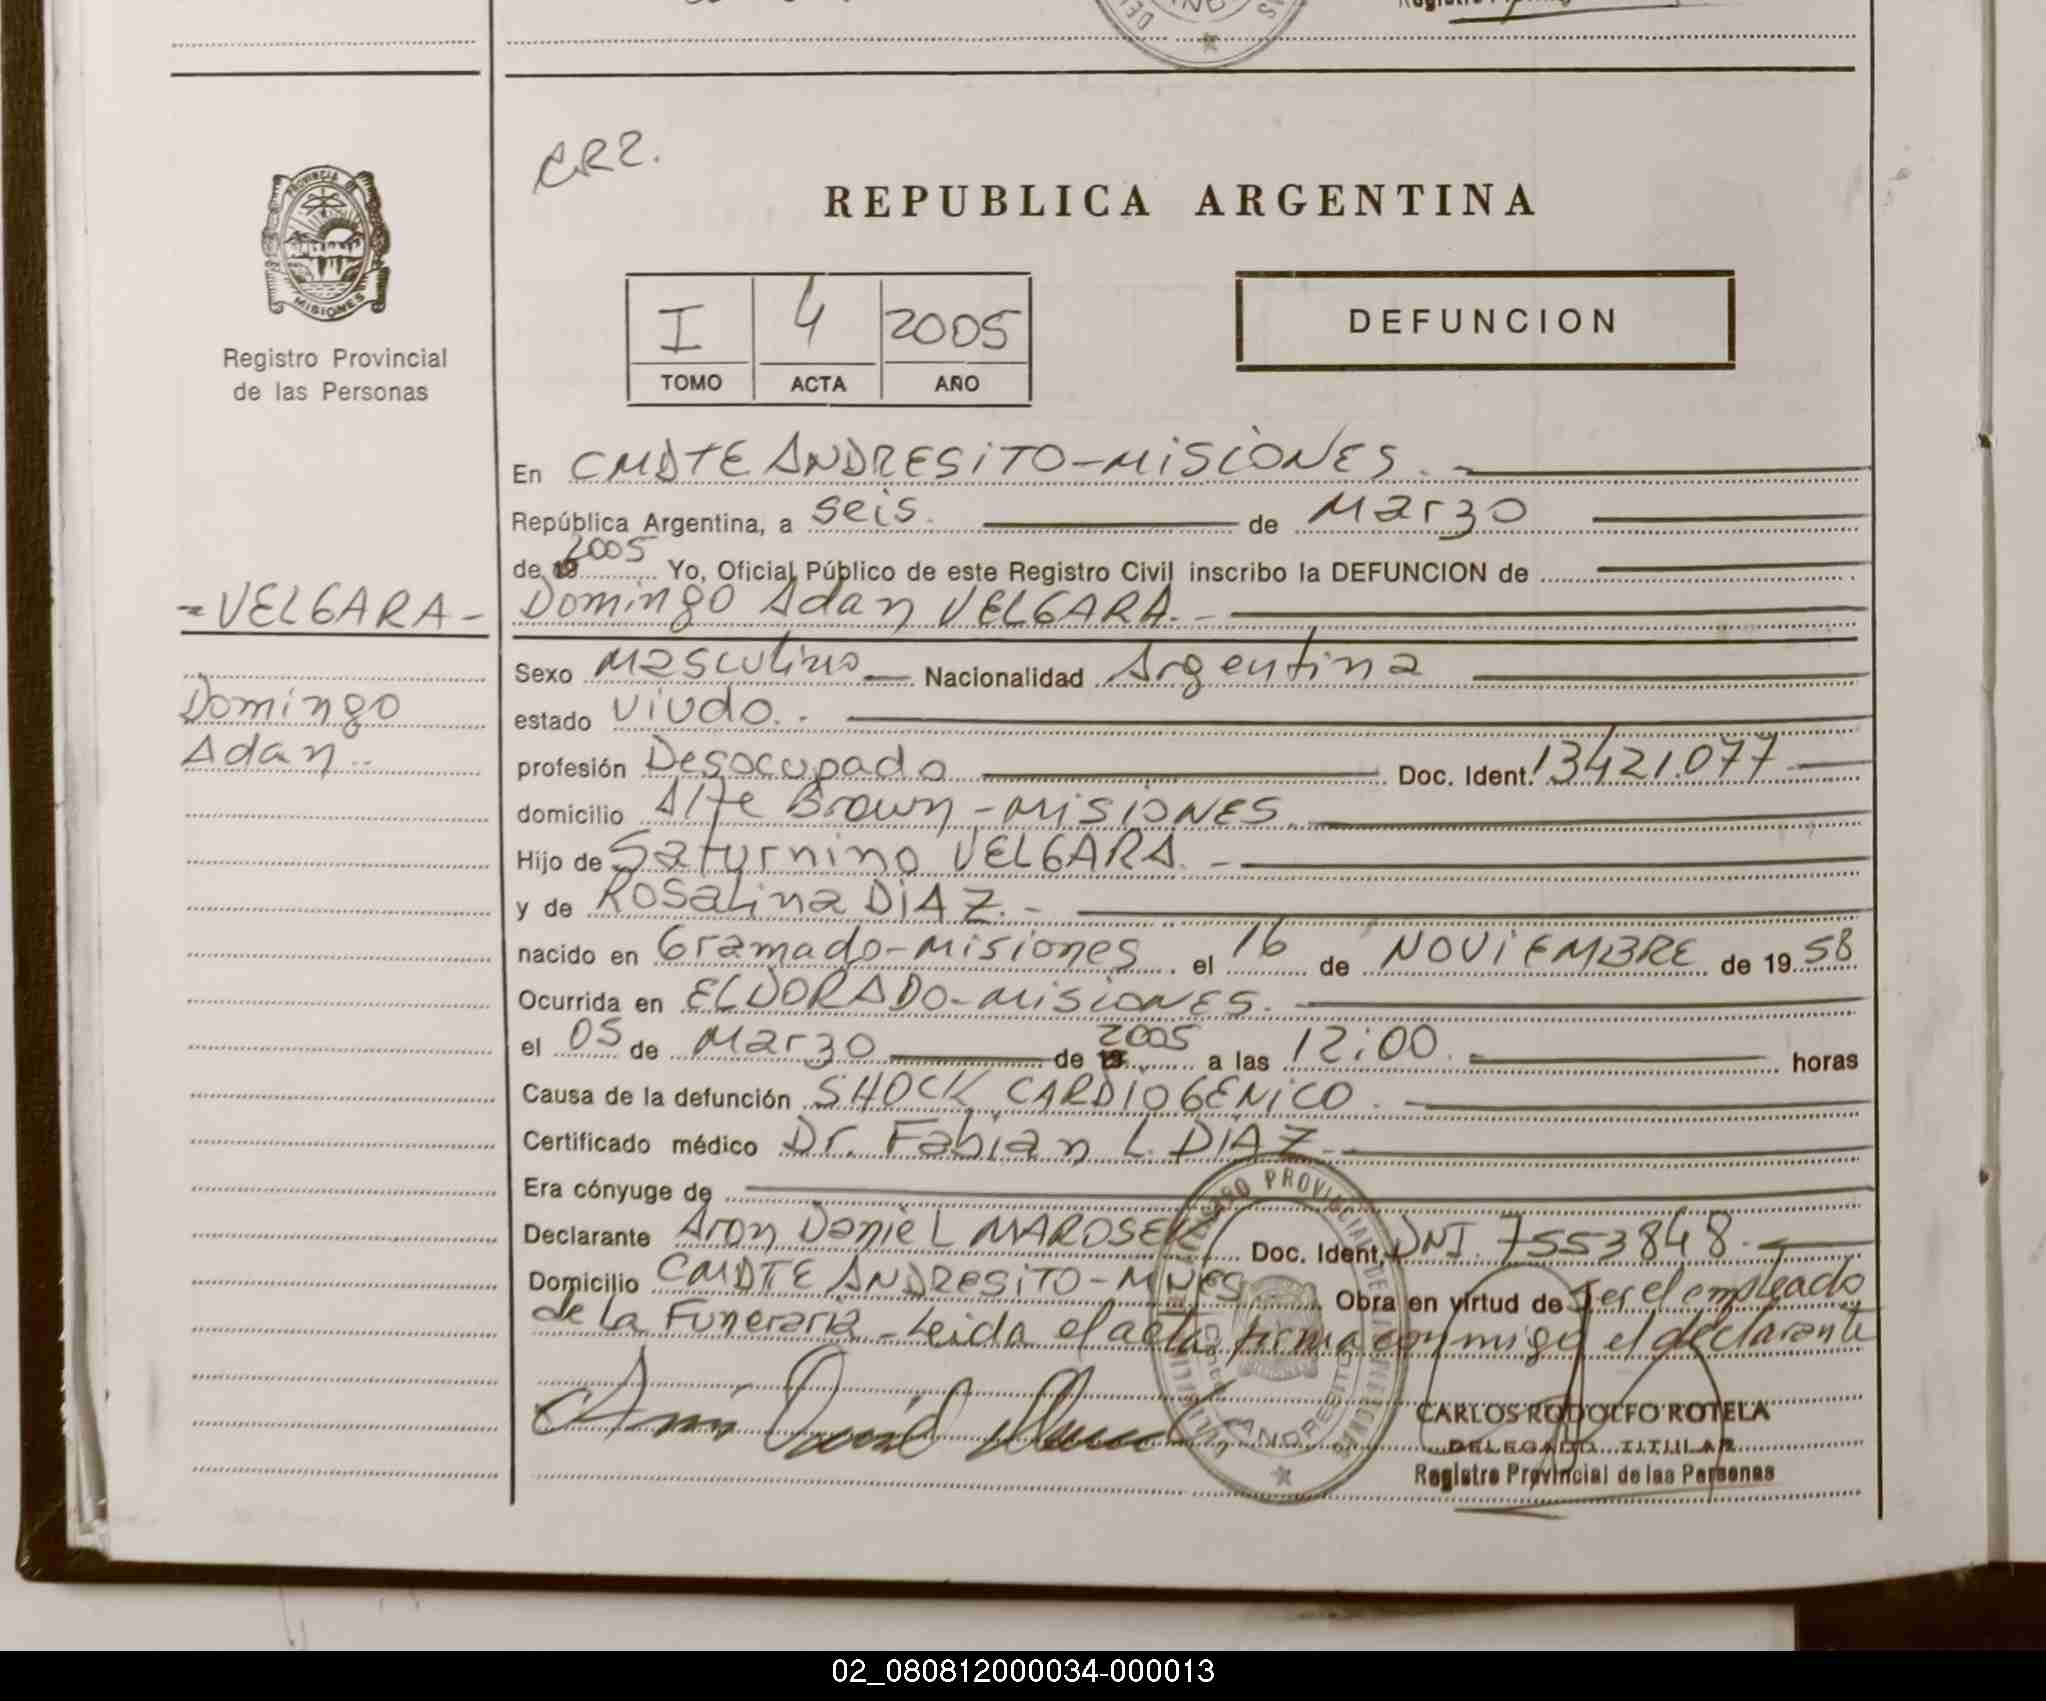 C.R.R.
PROVINCIA DE
MISIONES
Registro Provincial
de las Personas
REPUBLICA ARGENTINA
I 4 2005
TOMO ACTA AÑO
DEFUNCION
En CMDTE ANDRESITO-MISIONES.-
República Argentina, a seis. de Marzo
de 19 2005 Yo, Oficial Público de este Registro Civil inscribo la DEFUNCION de
Domingo Adan VELGARA.-
=VELGARA-
Domingo
Adan..
Sexo Masculino Nacionalidad Argentina
estado viudo..
profesión Desocupado Doc. Ident. 13421.077
domicilio Alte Brown-MISIONES.
Hijo de Saturnino VELGARA.-
y de Rosalina DIAZ.-
nacido en Gramado-Misiones. el 16 de NOVIEMBRE de 19 58
Ocurrida en ELDORADO-MISIONES.
el 05 de Marzo de 19 2005 a las 12:00. horas
Causa de la defunción SHOCK CARDIOGENICO.
Certificado médico Dr. Fabian L. DIAZ
Era cónyuge de
Declarante Aron Daniel MAROSEK Doc. Ident. DNI. 7553848.
Domicilio CMDTE ANDRESITO-MNES Obra en virtud de ser el empleado
de la Funeraria-Leida el acta firma conmigo el declarante
REGISTRO PROVINCIAL DE LAS PERSONAS
ANDRESITO
CARLOS RODOLFO ROTELA
DELEGADO TITULAR
Registro Provincial de las Personas
02_080812000034-000013